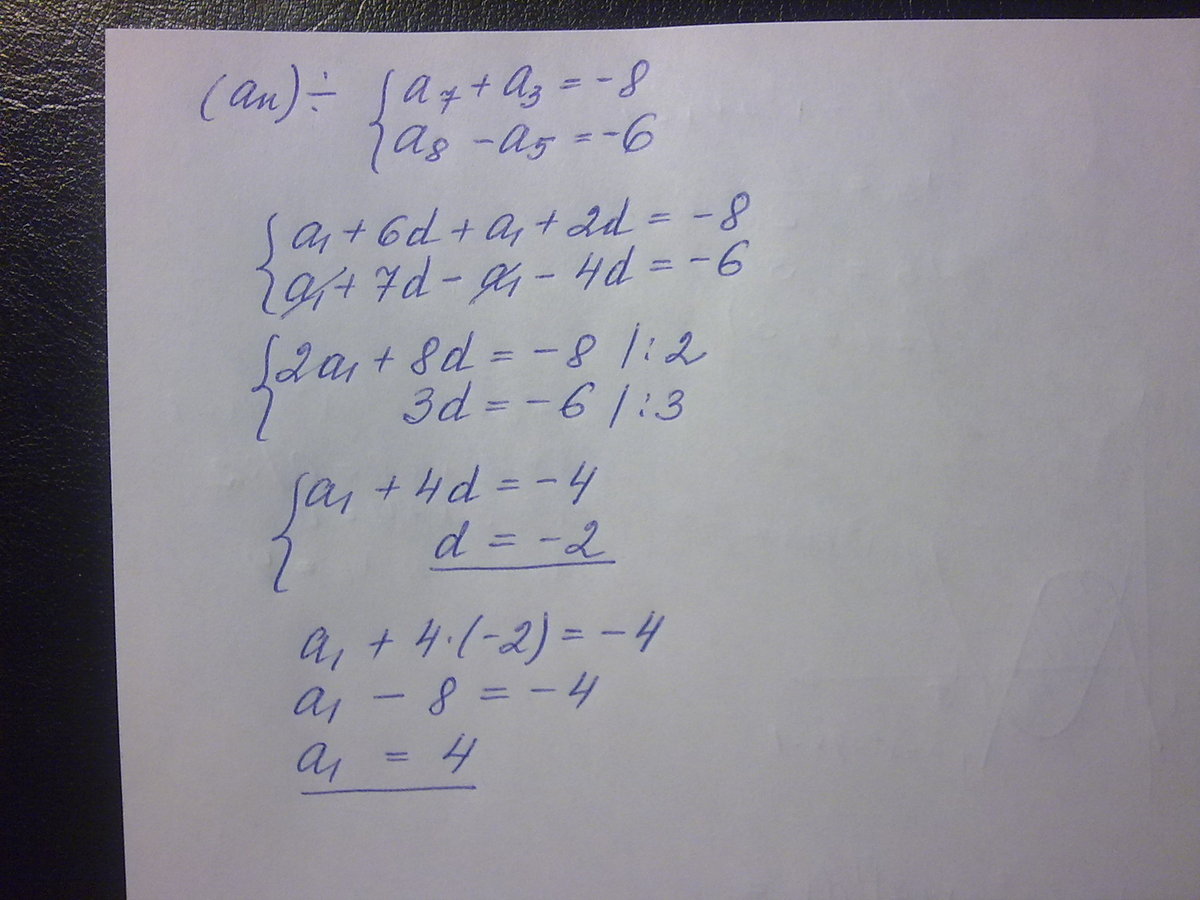 (an) ÷ { a₇ + a₃ = -8
a₈ - a₅ = -6
{ a₁ + 6d + a₁ + 2d = -8
a₁ + 7d - a₁ - 4d = -6
{ 2a₁ + 8d = -8 / : 2
3d = -6 / : 3
{ a₁ + 4d = -4
d = -2
a₁ + 4·(-2) = -4
a₁ - 8 = -4
a₁ = 4